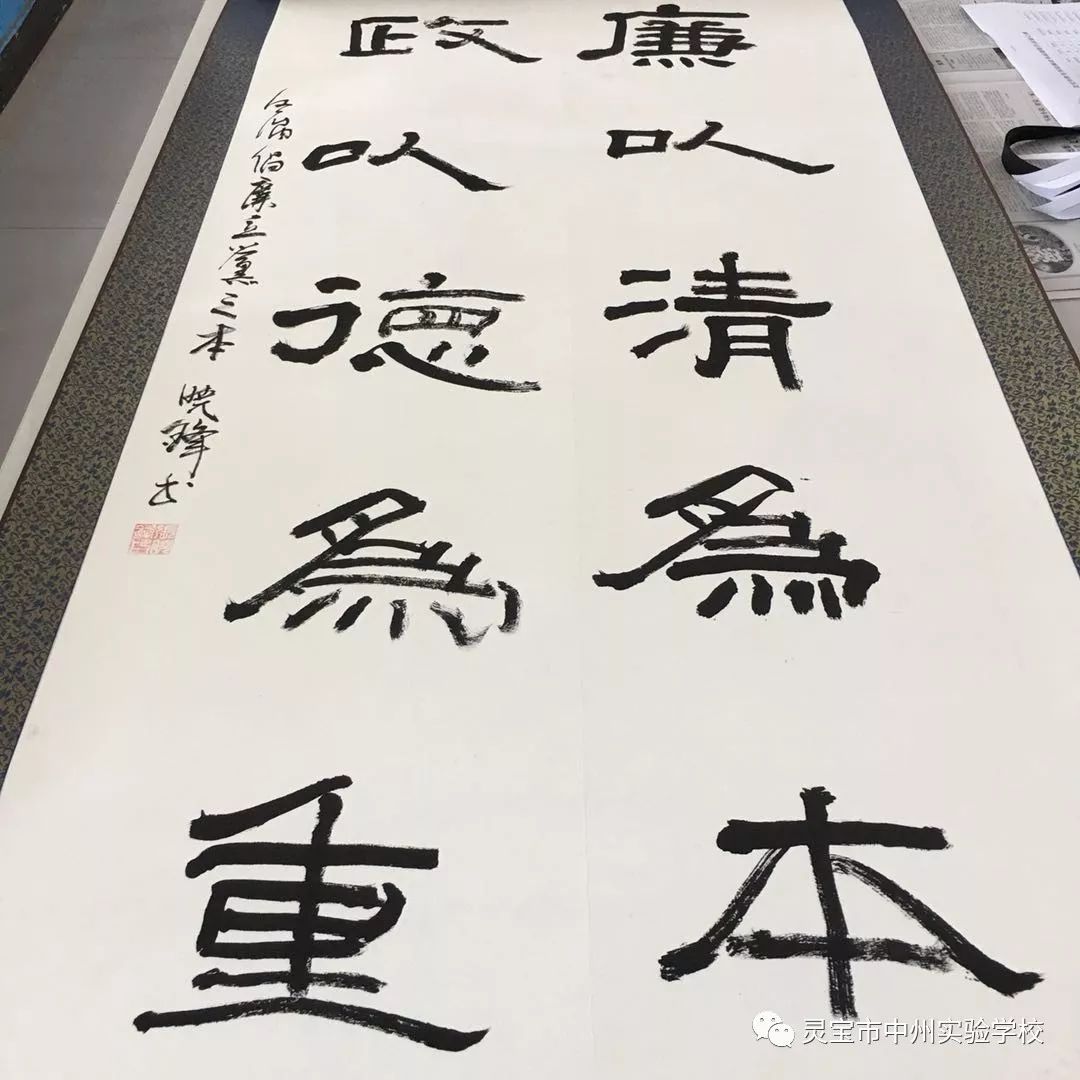 廉以清為本
政以德為重
反腐倡廉立黨之本 曉鋒书
灵宝市中州实验学校